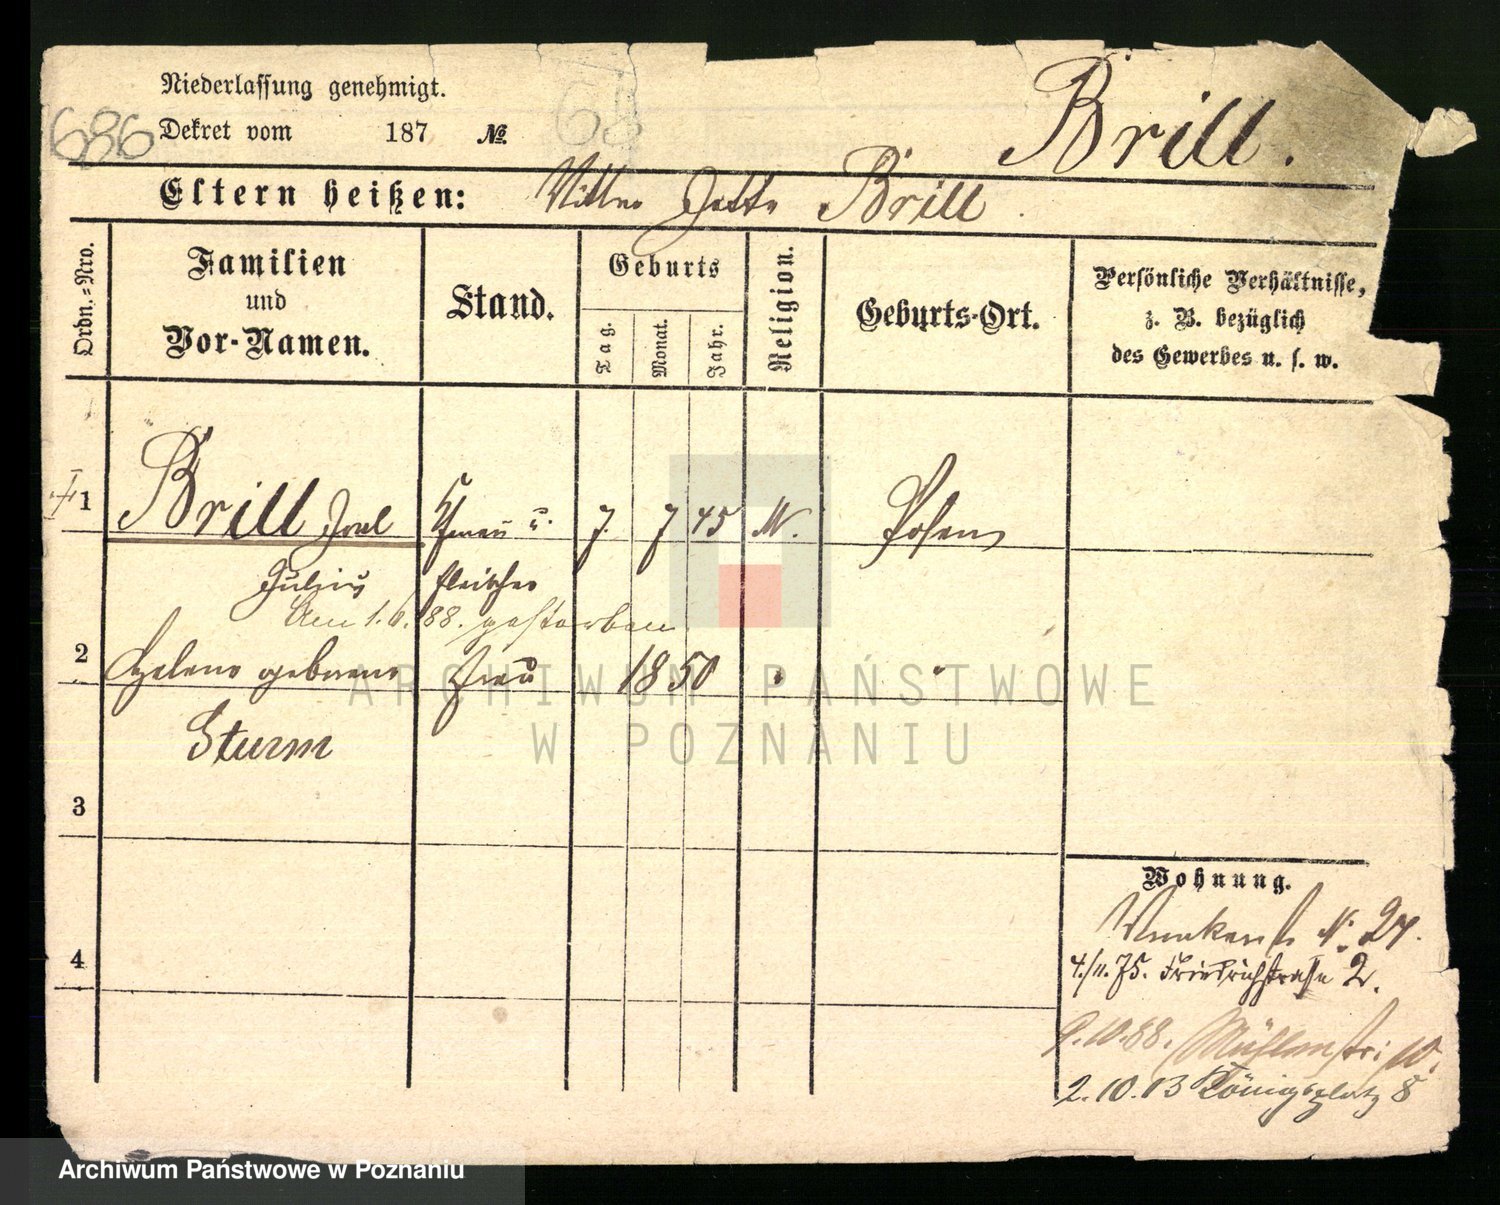 Niederlassung genehmigt.
686 Dekret vom 187 №
Brill.
Eltern heißen: Jette Brill
Ordn.-Nro.
Familien
und
Vor-Namen.
Stand.
Geburts
Tag.
Monat.
Jahr.
Religion.
Geburts-Ort.
Persönliche Verhältnisse,
z. B. bezüglich
des Gewerbes u. s. w.
1 Brill u. 7. 7 45 M. Posen
Julius Fleischer
Am 88. gestorben
2 Helene geborene Frau 1850
Sturm
ARCHIWUM PAŃSTWOWE
W POZNANIU
3
4
Wohnung.
N. 27.
4./11. 75. Friedrichstraße 2.
9.10.88. Mühlenstr. 10.
2.10.03 Königsplatz 8
Archiwum Państwowe w Poznaniu